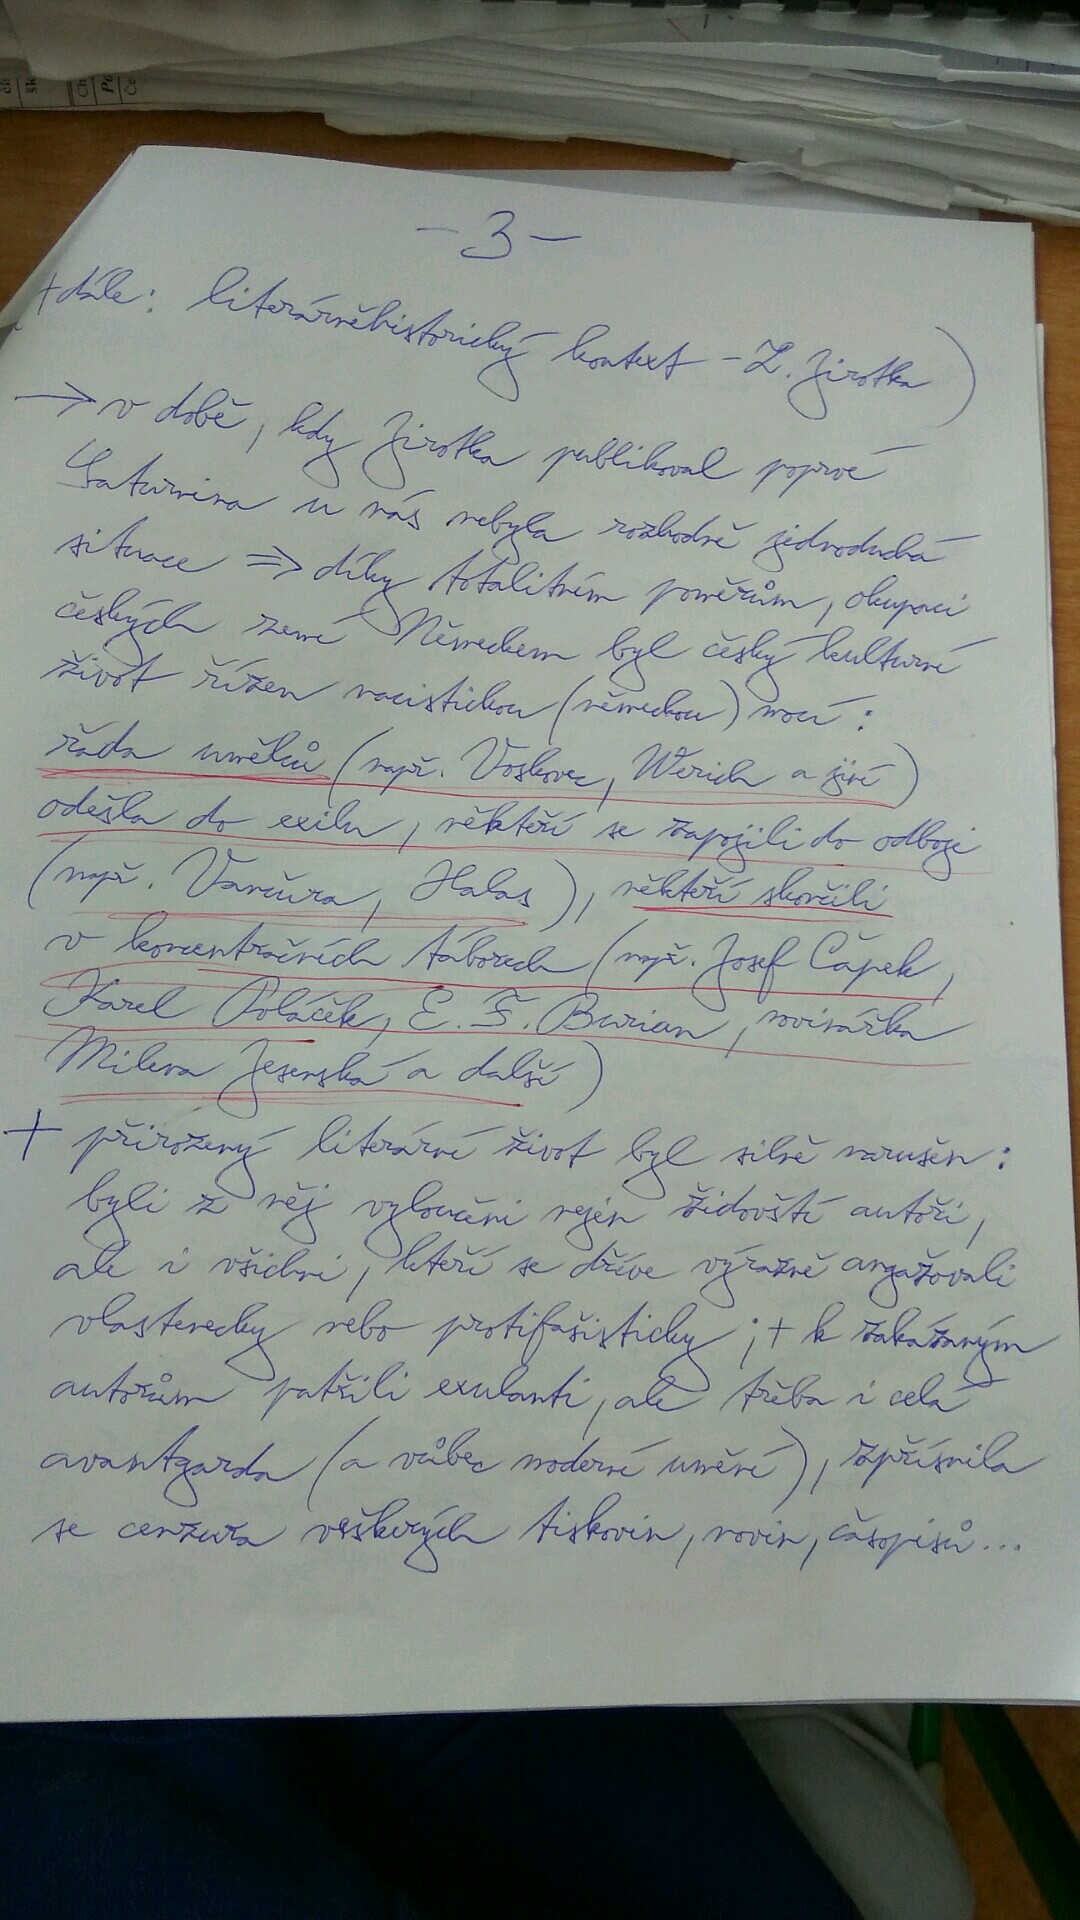 - 3 -
+ dále: literárněhistorický kontext - Z. Jirotka)
→ v době, kdy Jirotka publikoval poprvé
Saturnina u nás nebyla rozhodně jednoduchá
situace ⇒ díky totalitním poměrům, okupaci
českých zemí Německem byl český kulturní
život řízen nacistickou (německou) mocí:
řada umělců (např. Voskovec, Werich a jiní)
odešla do exilu, někteří se zapojili do odboje
(např. Vančura, Halas), někteří skončili
v koncentračních táborech (např. Josef Čapek,
Karel Poláček, E. F. Burian, novinářka
Milena Jesenská a další)
+ přirozený literární život byl silně narušen:
byli z něj vyloučeni nejen židovští autoři,
ale i všichni, kteří se dříve výrazně angažovali
vlastenecky nebo protifašisticky; + k zakázaným
autorům patřili exulanti, ale třeba i celá
avantgarda (a vůbec moderní umění), zpřísnila
se cenzura veškerých tiskovin, novin, časopisů...